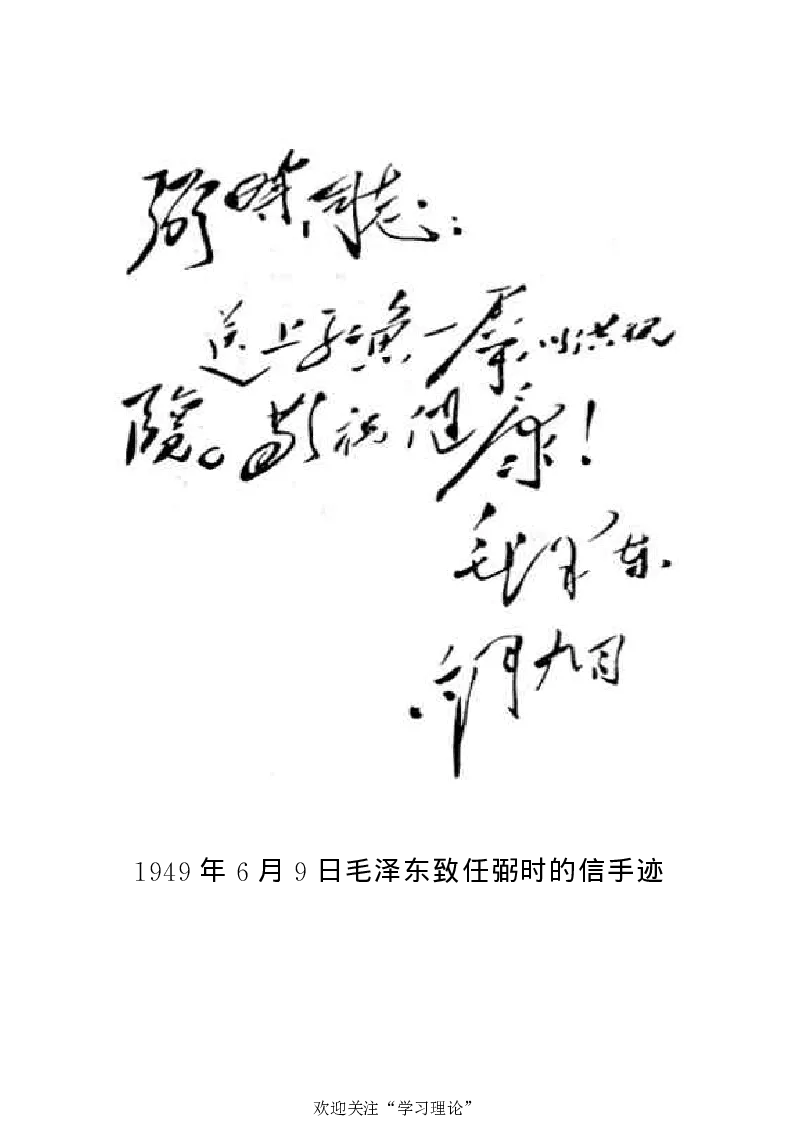 弼时同志：
送上红鱼一羣，以供观
覽。敬祝健康！
毛泽东
六月九日
1949 年 6 月 9 日毛泽东致任弼时的信手迹
欢迎关注“学习理论”